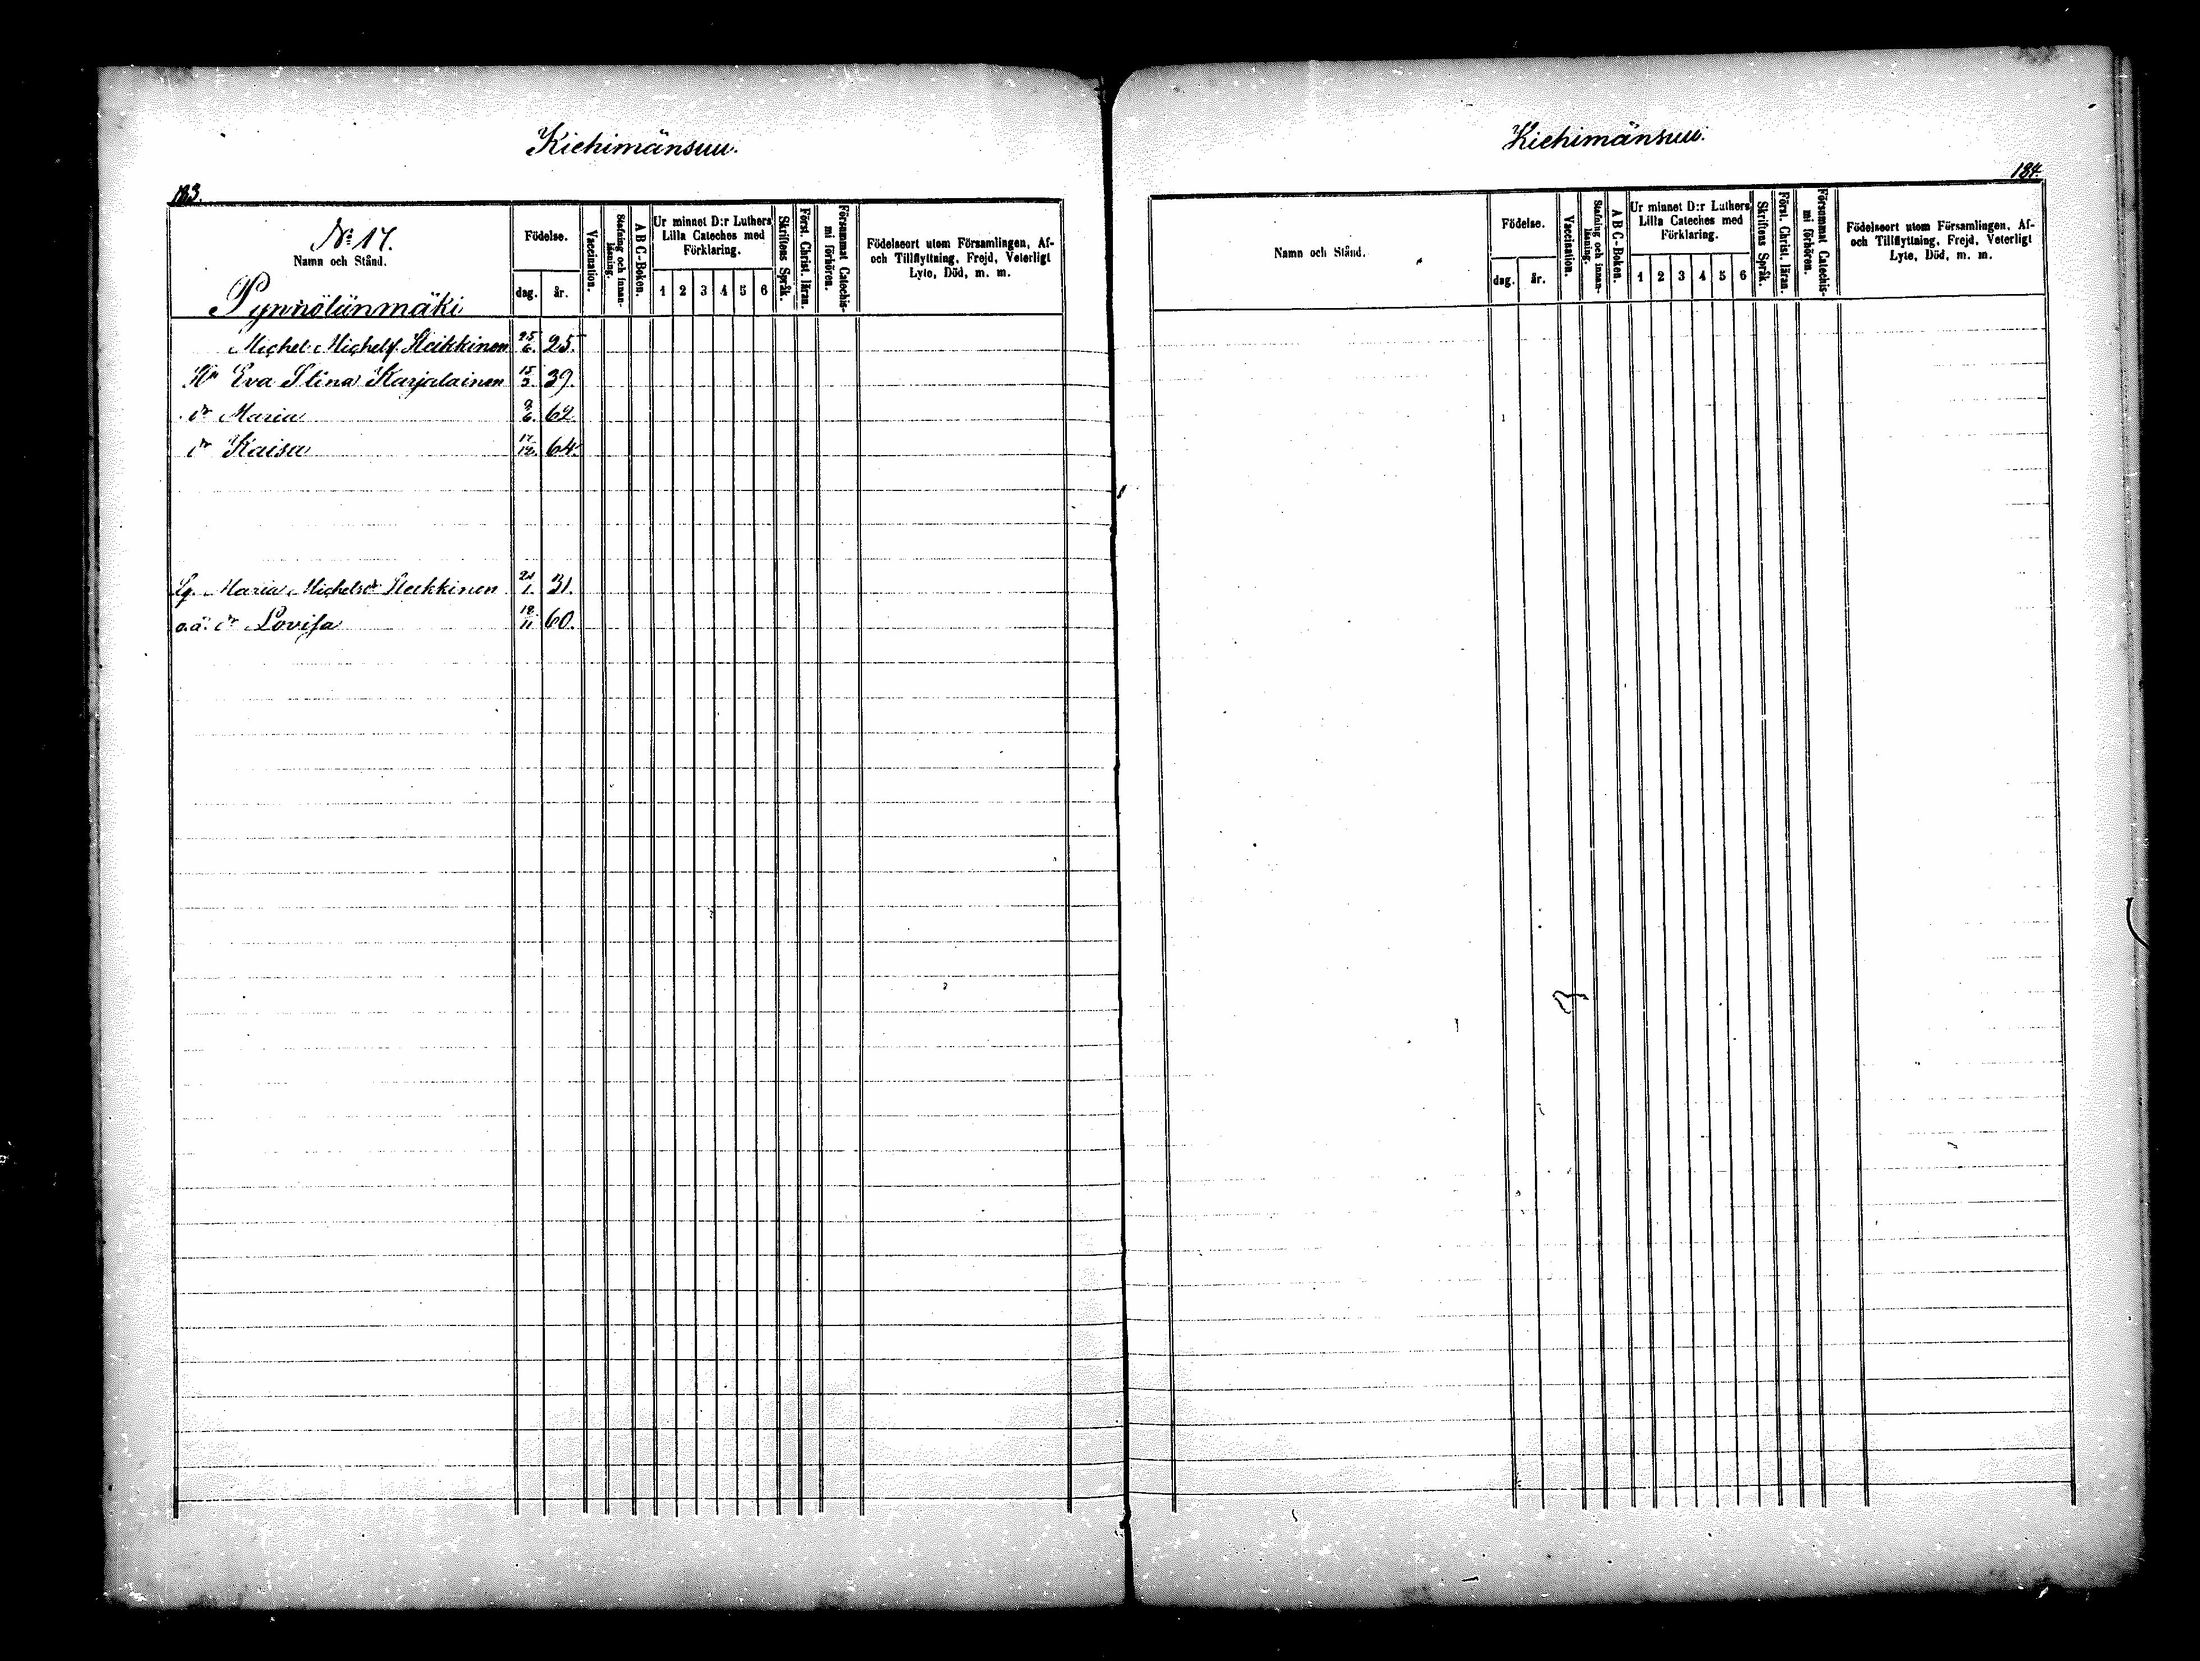 Kiehimänsuu.
183.
No 17.
Namn och Stånd.
Pynnölänmäki
Födelse.
dag. år.
Vaccination.
Stafning och innanläsning.
A B C-Boken.
Ur minnet D:r Luthers
Lilla Cateches med
Förklaring.
1 2 3 4 5 6
Skriftens Språk.
Först. Christ. läran.
Försummat Catechismi förhören.
Födelseort utom Församlingen, Af-
och Tillflyttning, Frejd, Veterligt
Lyte, Död, m. m.
Michel Michelsf Heikkinen 25/6. 25.
Hu Eva Stina Karjalainen 15/3. 39.
dr Maria 9/6. 62
dr Kaisa 17/12. 64.
Lg. Maria Michelsdr Heikkinen 24/1. 31.
o.ä. dr Lovisa 12/11. 60.
Kiehimänsuu.
184.
Namn och Stånd.
Födelse.
dag. år.
Vaccination.
Stafning och innanläsning.
A B C-Boken.
Ur minnet D:r Luthers
Lilla Cateches med
Förklaring.
1 2 3 4 5 6
Skriftens Språk.
Först. Christ. läran.
Försummat Catechismi förhören.
Födelseort utom Församlingen, Af-
och Tillflyttning, Frejd, Veterligt
Lyte, Död, m. m.